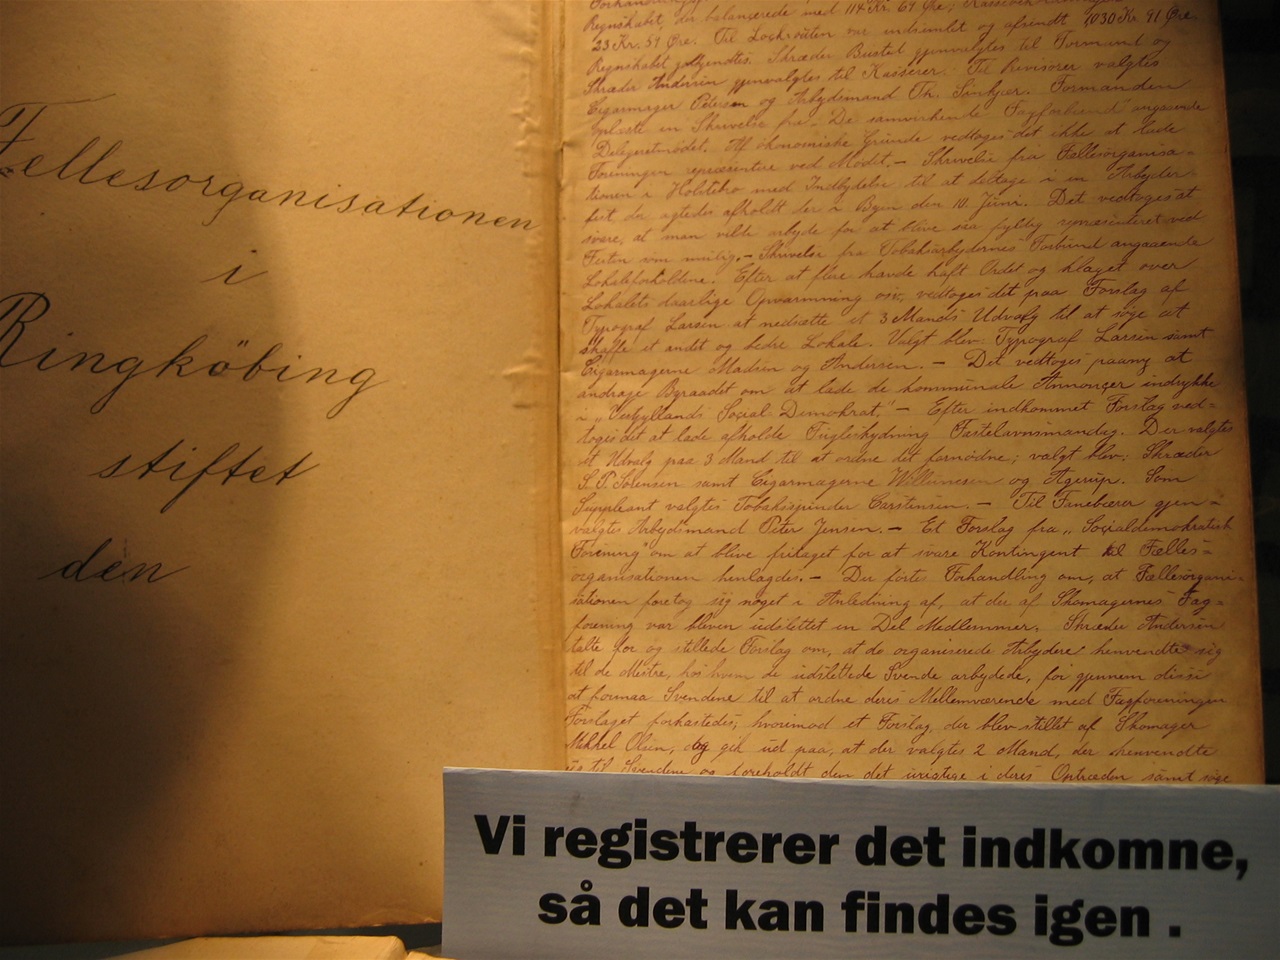 Fællesorganisationen
i
Ringköbing
stiftet
den
Regnskabet, der balancerede med 114 Kr. 69 Øre;
23 Kr. 51 Øre. Til Lockouten var indsamlet og afsendt 1030 Kr 91 Øre.
Regnskabet godkendtes. Skræder Busted gjenvalgtes til Formand og
Skræder Andersen gjenvalgtes til Kasserer. Til Revisorer valgtes
Cigarmager Petersen og Arbejdsmand Th. Formanden
oplæste en Skrivelse fra "De samvirkende Fagforbund" angaaende
Delegeretmødet. Af økonomiske Grunde vedtoges det ikke at lade
Foreningen repræsentere ved Mødet. — Skrivelse fra Fællesorganisa-
tionen i Holstebro med Indbydelse til at deltage i en Arbejder-
fest der agtedes afholdt der i Byen den 10. Juni. Det vedtoges at
svare, at man vilde arbejde for at blive saa fyldig repræsenteret ved
Festen som mulig. — Skrivelse fra Tobaksarbejdernes Forbund angaaende
Lokaleforholdene. Efter at flere havde haft Ordet og klaget over
Lokalets daarlige Opvarmning osv, vedtoges det paa Forslag af
Typograf Larsen at nedsætte et 3 Mands Udvalg til at søge at
skaffe et andet og bedre Lokale. Valgt blev: Typograf Larsen samt
Cigarmagerne Madsen og Andersen. — Det vedtoges paany at
andrage Byraadet om at lade de kommunale Annoncer indrykke
i "Vestjyllands Social-Demokrat." — Efter indkommet Forslag ved-
toges det at lade afholde Fugleskydning Fastelavnsmandag. Der valgtes
et Udvalg paa 3 Mand til at ordne det fornødne; valgt blev: Skræder
S. P. Sörensen samt Cigarmagerne Willumsen og Agerup. Som
Suppleant valgtes Tobaksspinder Carstensen. — Til Fanebærer gjen-
valgtes Arbejdsmand Peter Jensen. — Et Forslag fra "Socialdemokratisk
Forening" om at blive fritaget for at svare Kontingent til Fælles-
organisationen henlagdes. — Der førtes Forhandling om, at Fællesorgani-
sationen foretog sig noget i Anledning af, at der af Skomagernes Fag-
forening var bleven udslettet en Del Medlemmer. Skræder Andersen
talte for og stillede Forslag om, at de organiserede Arbejdere henvendte sig
til de Mestre, hos hvem de udslettede Svende arbejdede, for gjennem disse
at formaa Svendene til at ordne deres Mellemværende med Fagforeningen
Forslaget forkastedes, hvorimod et Forslag, der blev stillet af Skomager
Mikkel Olsen, og gik ud paa, at der valgtes 2 Mand, der henvendte
sig til Svendene og foreholdt dem det urigtige i deres Optræden samt søge
Vi registrerer det indkomne,
så det kan findes igen .